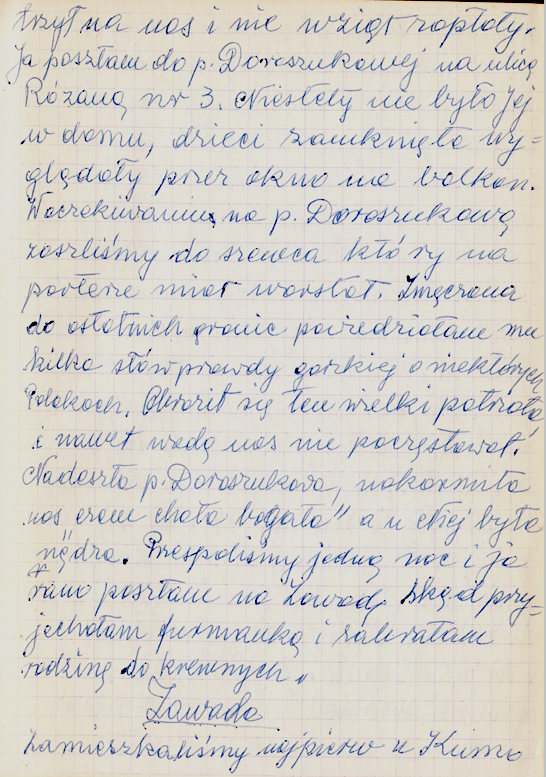 trzył na nas i nie wziął zapłaty.
Ja poszłam do p. Doroszukowej na ulicę
Różaną nr 3. Niestety nie było jej
w domu, dzieci zamknięte wy=
glądały przez okno na balkon.
W oczekiwaniu na p. Doroszukową
zaszliśmy do szewca który na
parterze miał warstat. Zmęczona
do ostatnich granic powiedziałam mu
kilka słów prawdy gorzkiej o niektórych
Polakach. Obraził się ten wielki patriota
i nawet wodą nas nie poczęstował.
Nadeszła p. Doroszukowa, nakarmiła
nas czem chata bogata" a u niej była
nędza. Przespaliśmy jedną noc i ja
rano poszłam na Zawadę. Skąd przy=
jechałam furmanką i zabrałam
rodzinę do krewnych.
Zawada
Zamieszkaliśmy najpierw u Kuma